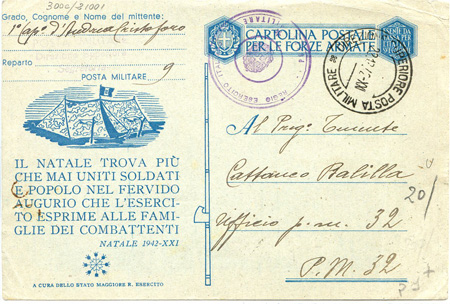 3000/31001
Grado, Cognome e Nome del mittente:
1° Cap. d'Andrea Cristoforo
Reparto
POSTA MILITARE 9
CARTOLINA POSTALE
PER LE FORZE ARMATE
REGIO ESERCITO
POSTA MILITARE
Al Preg. Tenente
Cattaneo Balilla
Ufficio p.m. 32
P.M. 32
20/
IL NATALE TROVA PIÙ
CHE MAI UNITI SOLDATI
E POPOLO NEL FERVIDO
AUGURIO CHE L'ESERCI-
TO ESPRIME ALLE FAMI-
GLIE DEI COMBATTENTI
NATALE 1942-XXI
A CURA DELLO STATO MAGGIORE R. ESERCITO